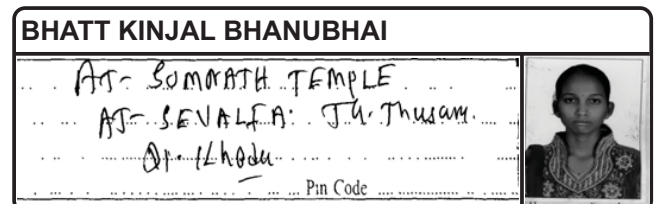 BHATT KINJAL BHANUBHAI
AT- SOMNATH TEMPLE
AT- SEVALIA: TA. Thusam.
Di-
Pin Code